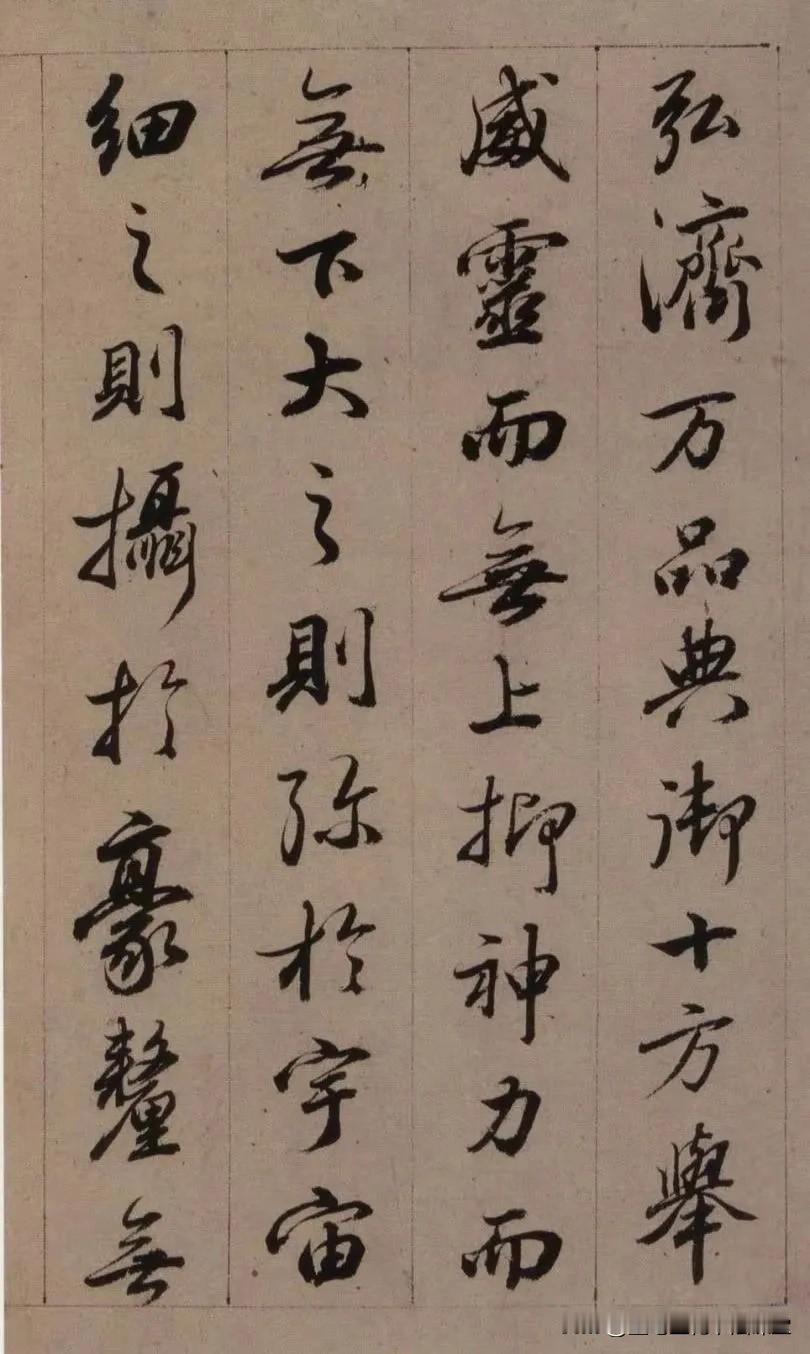 弘濟万品典御十方舉
威靈而無上抑神力而
無下大之則弥於宇宙
細之則攝於豪釐無